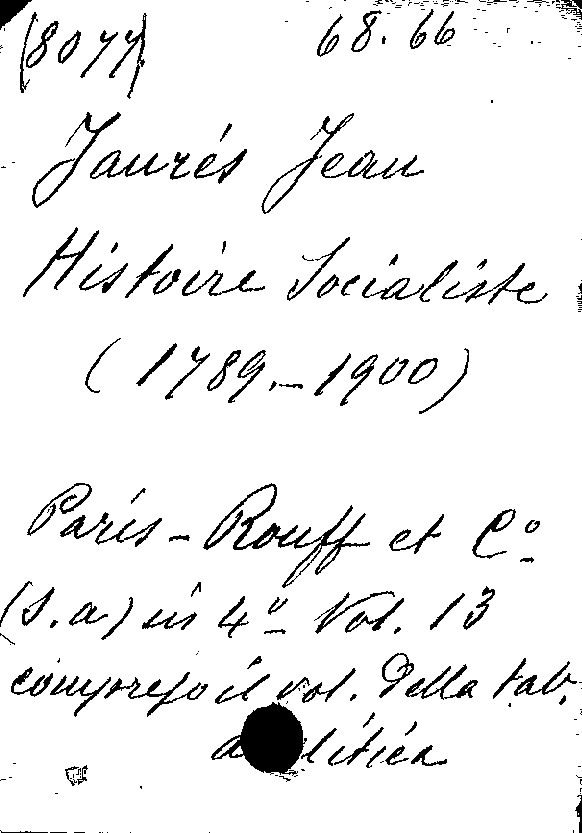 (8077) 68.66
Jaurés Jean
Histoire Socialiste
(1789.-1900)
Paris - Rouff et Cº
(s.a) in 4º Vol. 13
compreso il vol. della tav.